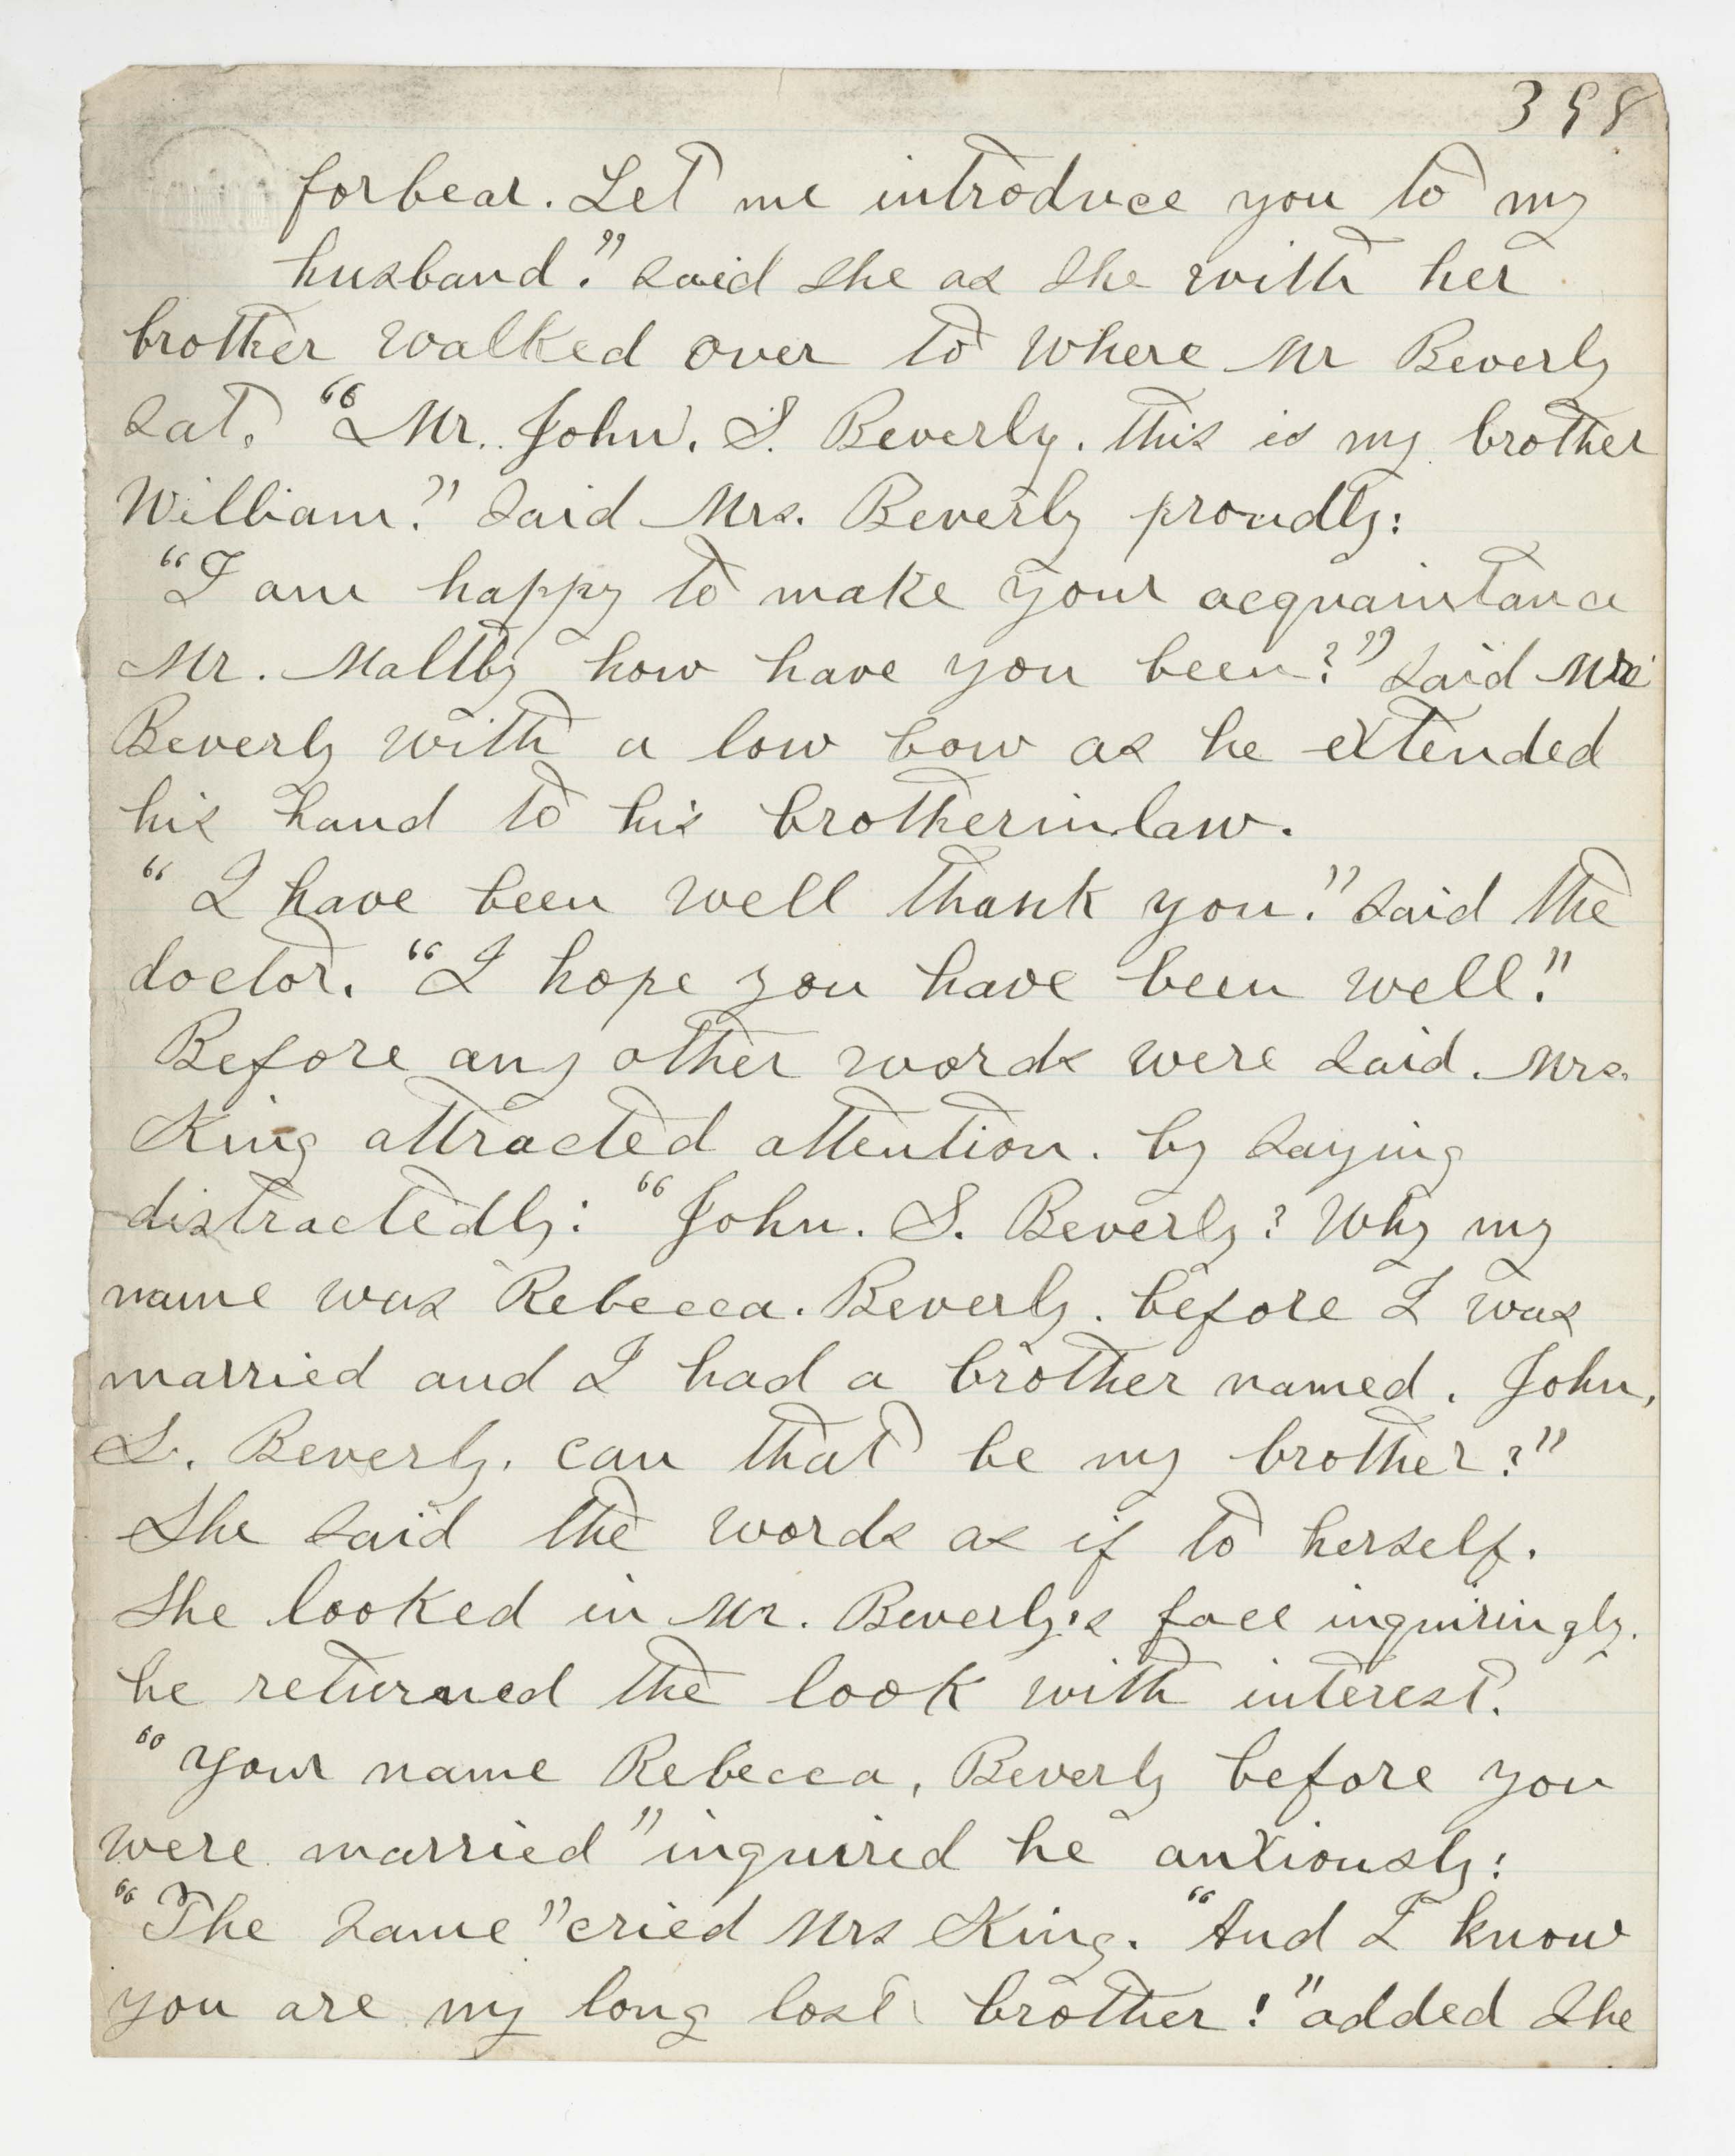 398
forbear. Let me introduce you to my
husband." said she as she with her
brother walked over to where Mr Beverly
sat. "Mr. John. S. Beverly. this is my brother
William." said Mrs. Beverly proudly:
"I am happy to make your acquaintance
Mr. Maltby how have you been?" said Mr.
Beverly with a low bow as he extended
his hand to his brotherinlaw.
"I have been well thank you." said the
doctor. "I hope you have been well."
Before any other words were said. Mrs.
King attracted attention. by saying
distractedly: "John. S. Beverly? Why my
name was Rebecca. Beverly. before I was
married and I had a brother named. John.
S. Beverly. can that be my brother?"
She said the words as if to herself.
She looked in Mr. Beverly's face inquiringly.
he returned the look with interest.
"Your name Rebecca, Beverly before you
were married" inquired he anxiously:
"The same" cried Mrs King. "And I know
you are my long lost brother!" added she